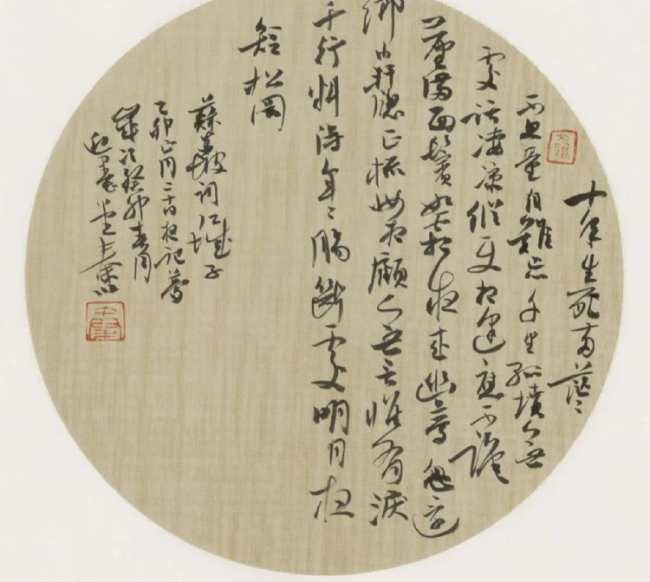 十年生死两茫ミ
不思量自难忘千里孤坟〻无
处话凄凉纵使相逢应不识
尘满面鬓如霜夜来幽梦忽还
乡小轩窗正梳妆相顾〻无言惟有泪
千行料得年ミ肠断处明月夜
短松冈
苏东坡词江城子
乙卯正月二十日夜记梦
岁次癸卯春月